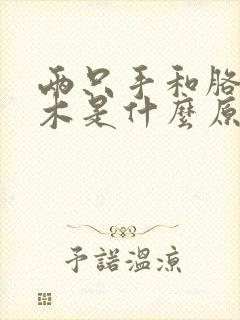 兩只手和胳
木是什麼原
予諾溫涼